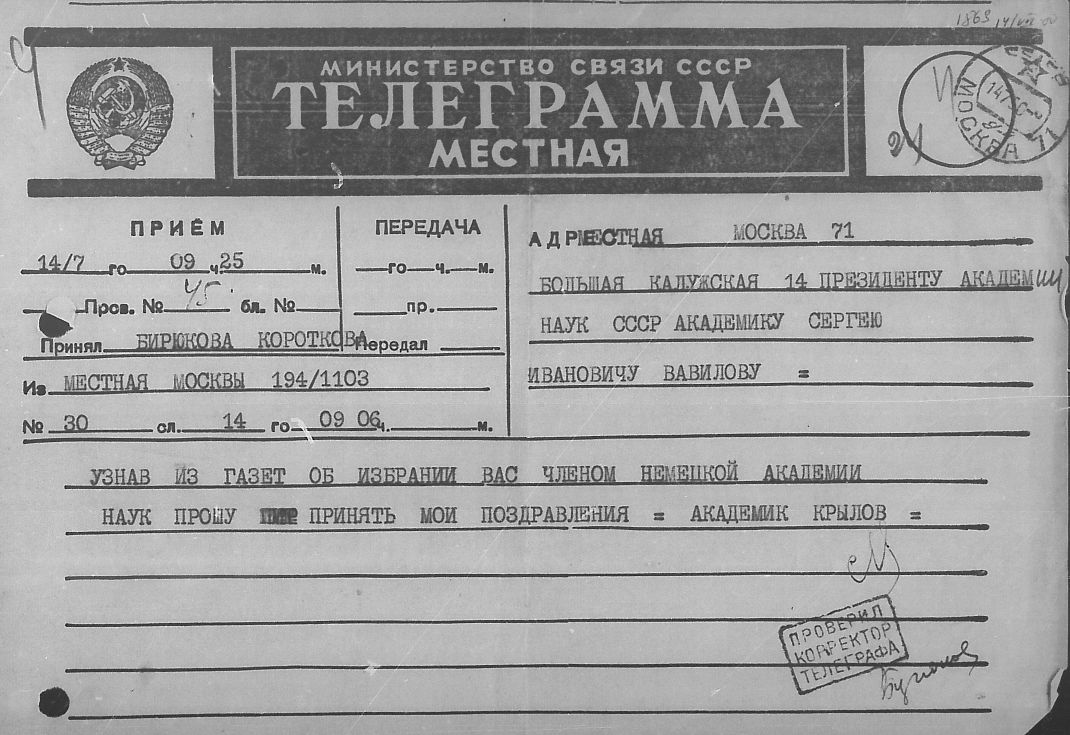 МИНИСТЕРСТВО СВЯЗИ СССР
ТЕЛЕГРАММА
МЕСТНАЯ
МОСКВА 71
ПРИЁМ
14/7 го 09 ч. 25 м.
Пров. № 45. бл. №
Принял БИРЮКОВА КОРОТКОВА
Из МЕСТНАЯ МОСКВЫ 194/1103
№ 30 сл. 14 го 09 06 ч. м.
ПЕРЕДАЧА
го ч. м.
пр.
Передал
АДР МЕСТНАЯ МОСКВА 71
БОЛЬШАЯ КАЛУЖСКАЯ 14 ПРЕЗИДЕНТУ АКАДЕМИИ
НАУК СССР АКАДЕМИКУ СЕРГЕЮ
ИВАНОВИЧУ ВАВИЛОВУ =
УЗНАВ ИЗ ГАЗЕТ ОБ ИЗБРАНИИ ВАС ЧЛЕНОМ НЕМЕЦКОЙ АКАДЕМИИ
НАУК ПРОШУ ПРИНЯТЬ МОИ ПОЗДРАВЛЕНИЯ = АКАДЕМИК КРЫЛОВ =
ПРОВЕРИЛ
КОРРЕКТОР
ТЕЛЕГРАФА